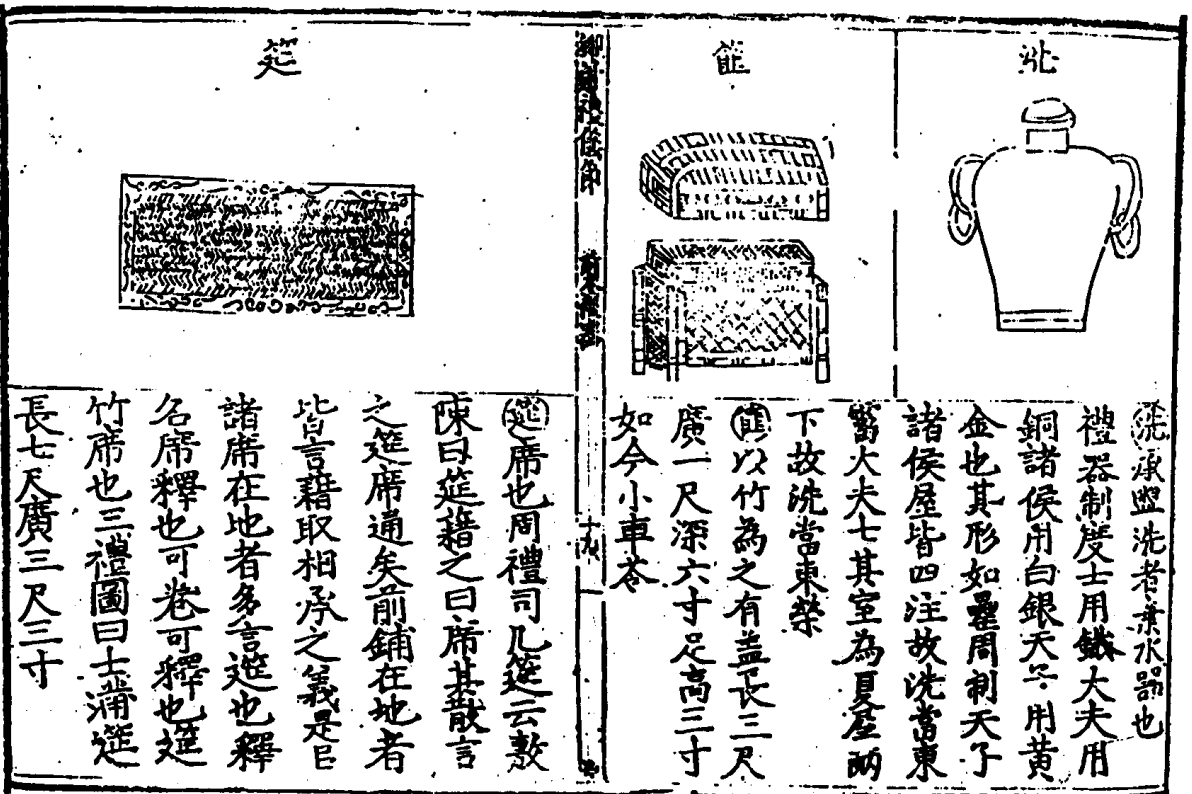 洗
洗承盥洗者棄水器也
禮器制度士用鐵大夫用
銅諸侯用白銀天子用黃
金也其形如罍周制天子
諸侯屋皆四注故洗當東
霤大夫士其室為夏屋兩
下故洗當東榮
篚
篚以竹為之有盖長三尺
廣一尺深六寸足高三寸
如今小車笭
鄉射禮儀節
十九
筵
筵席也周禮司几筵云敷
陳曰筵藉之曰席其散言
之筵席通矣前鋪在地者
皆言藉取相承之義是以
諸席在地者多言筵也釋
名席釋也可卷可釋也筵
竹席也三禮圖曰士蒲筵
長七尺廣三尺三寸